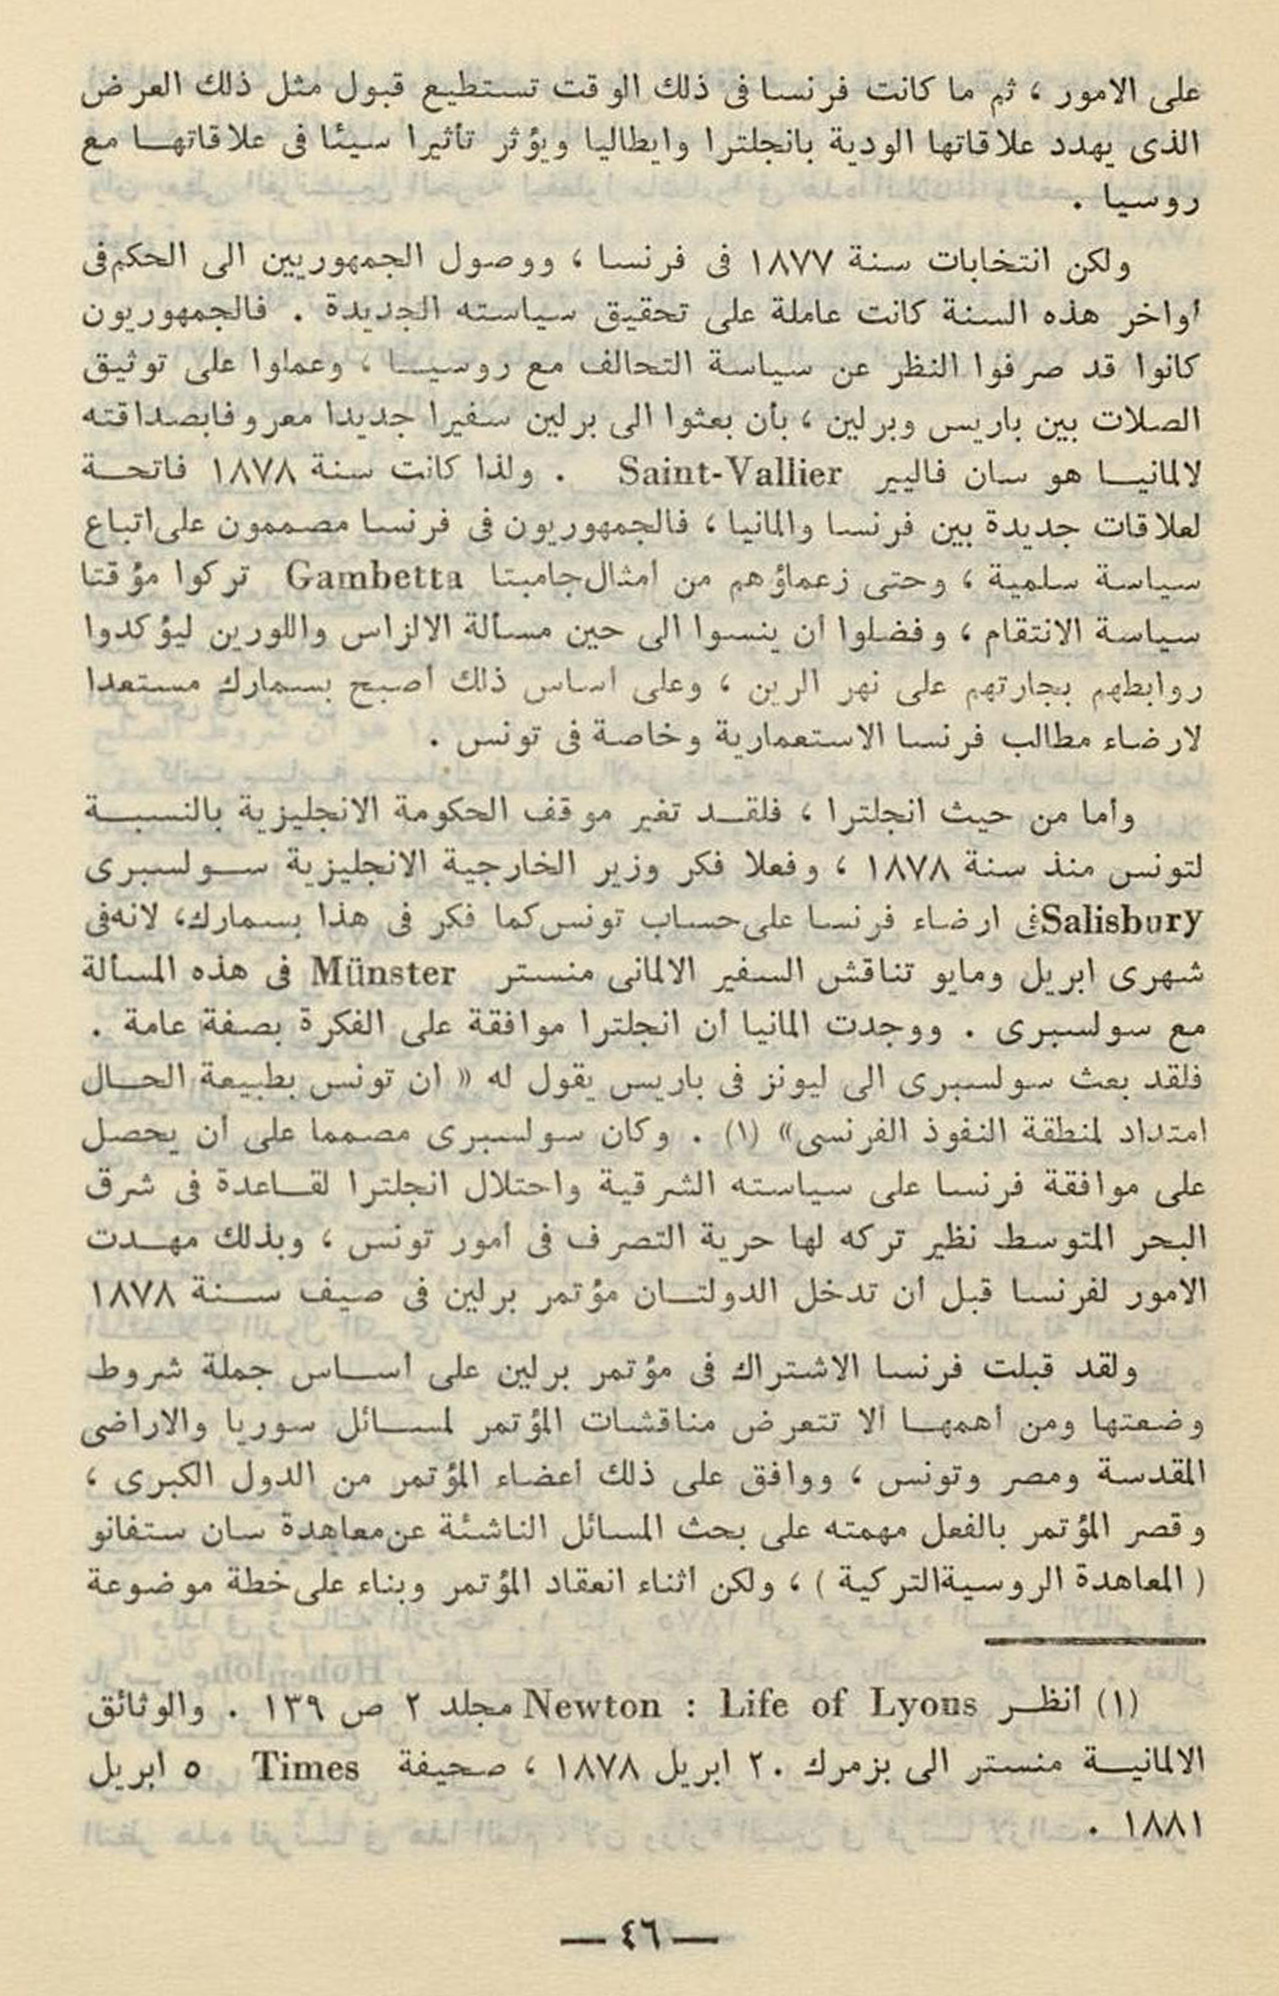 على الامور ، ثم ما كانت فرنسا فى ذلك الوقت تستطيع قبول مثل ذلك العرض
الذى يهدد علاقاتها الودية بانجلترا وايطاليا ويؤثر تأثيرا سيئا فى علاقاتهـا مع
روسيا .
ولكن انتخابات سنة ١٨٧٧ فى فرنسا ، ووصول الجمهوريين الى الحكم فى
أواخر هذه السنة كانت عاملة على تحقيق سياسته الجديدة . فالجمهوريون
كانوا قد صرفوا النظر عن سياسة التحالف مع روسيـا ، وعملوا على توثيق
الصلات بين باريس وبرلين ، بأن بعثوا الى برلين سفيرا جديدا معروفا بصداقته
لالمانيـا هو سان فاليير Saint-Vallier . ولذا كانت سنة ١٨٧٨ فاتحـة
لعلاقات جديدة بين فرنسا والمانيا ، فالجمهوريون فى فرنسا مصممون على اتباع
سياسة سلمية ، وحتى زعماؤهم من أمثال جامبتا Gambetta تركوا مؤقتا
سياسة الانتقام ، وفضلوا أن ينسوا الى حين مسألة الالزاس واللورين ليؤكدوا
روابطهم بجارتهم على نهر الرين ، وعلى أساس ذلك أصبح بسمارك مستعدا
لارضاء مطالب فرنسا الاستعمارية وخاصة فى تونس .
وأما من حيث انجلترا ، فلقـد تغير موقف الحكومة الانجليزية بالنسبـة
لتونس منذ سنة ١٨٧٨ ، وفعلا فكر وزير الخارجية الانجليزية سـولسبرى
Salisbury فى ارضاء فرنسا على حساب تونس كما فكر فى هذا بسمارك، لانه فى
شهرى ابريل ومايو تناقش السفير الالمانى منستر Münster فى هذه المسألة
مع سولسبرى . ووجدت المانيا أن انجلترا موافقة على الفكرة بصفة عامة .
فلقد بعث سولسبرى الى ليونز فى باريس يقول له « ان تونس بطبيعة الحـال
امتداد لمنطقة النفوذ الفرنسى» (١) . وكان سولسبرى مصمما على أن يحصل
على موافقة فرنسا على سياسته الشرقية واحتلال انجلترا لقـاعدة فى شرق
البحر المتوسط نظير تركه لها حرية التصرف فى أمور تونس ، وبذلك مهـدت
الامور لفرنسا قبل أن تدخل الدولتـان مؤتمر برلين فى صيف سـنة ١٨٧٨
ولقد قبلت فرنسا الاشتراك فى مؤتمر برلين على أسـاس جملة شروط
وضعتها ومن أهمهـا ألا تتعرض مناقشات المؤتمر لمسـائل سوريا والاراضى
المقدسة ومصر وتونس ، ووافق على ذلك أعضاء المؤتمر من الدول الكبرى ،
وقصر المؤتمر بالفعل مهمته على بحث المسائل الناشئة عن معاهدة سان ستفانو
( المعاهدة الروسية التركية ) ، ولكن أثناء انعقاد المؤتمر وبناء على خطة موضوعة
(١) أنظـر Newton : Life of Lyons مجلد ٢ ص ١٣٩ . والوثائق
الالمانيـة منستر الى بزمرك ٢٠ ابريل ١٨٧٨ ، صحيفة Times ٥ ابريل
١٨٨١ .
— ٤٦ —